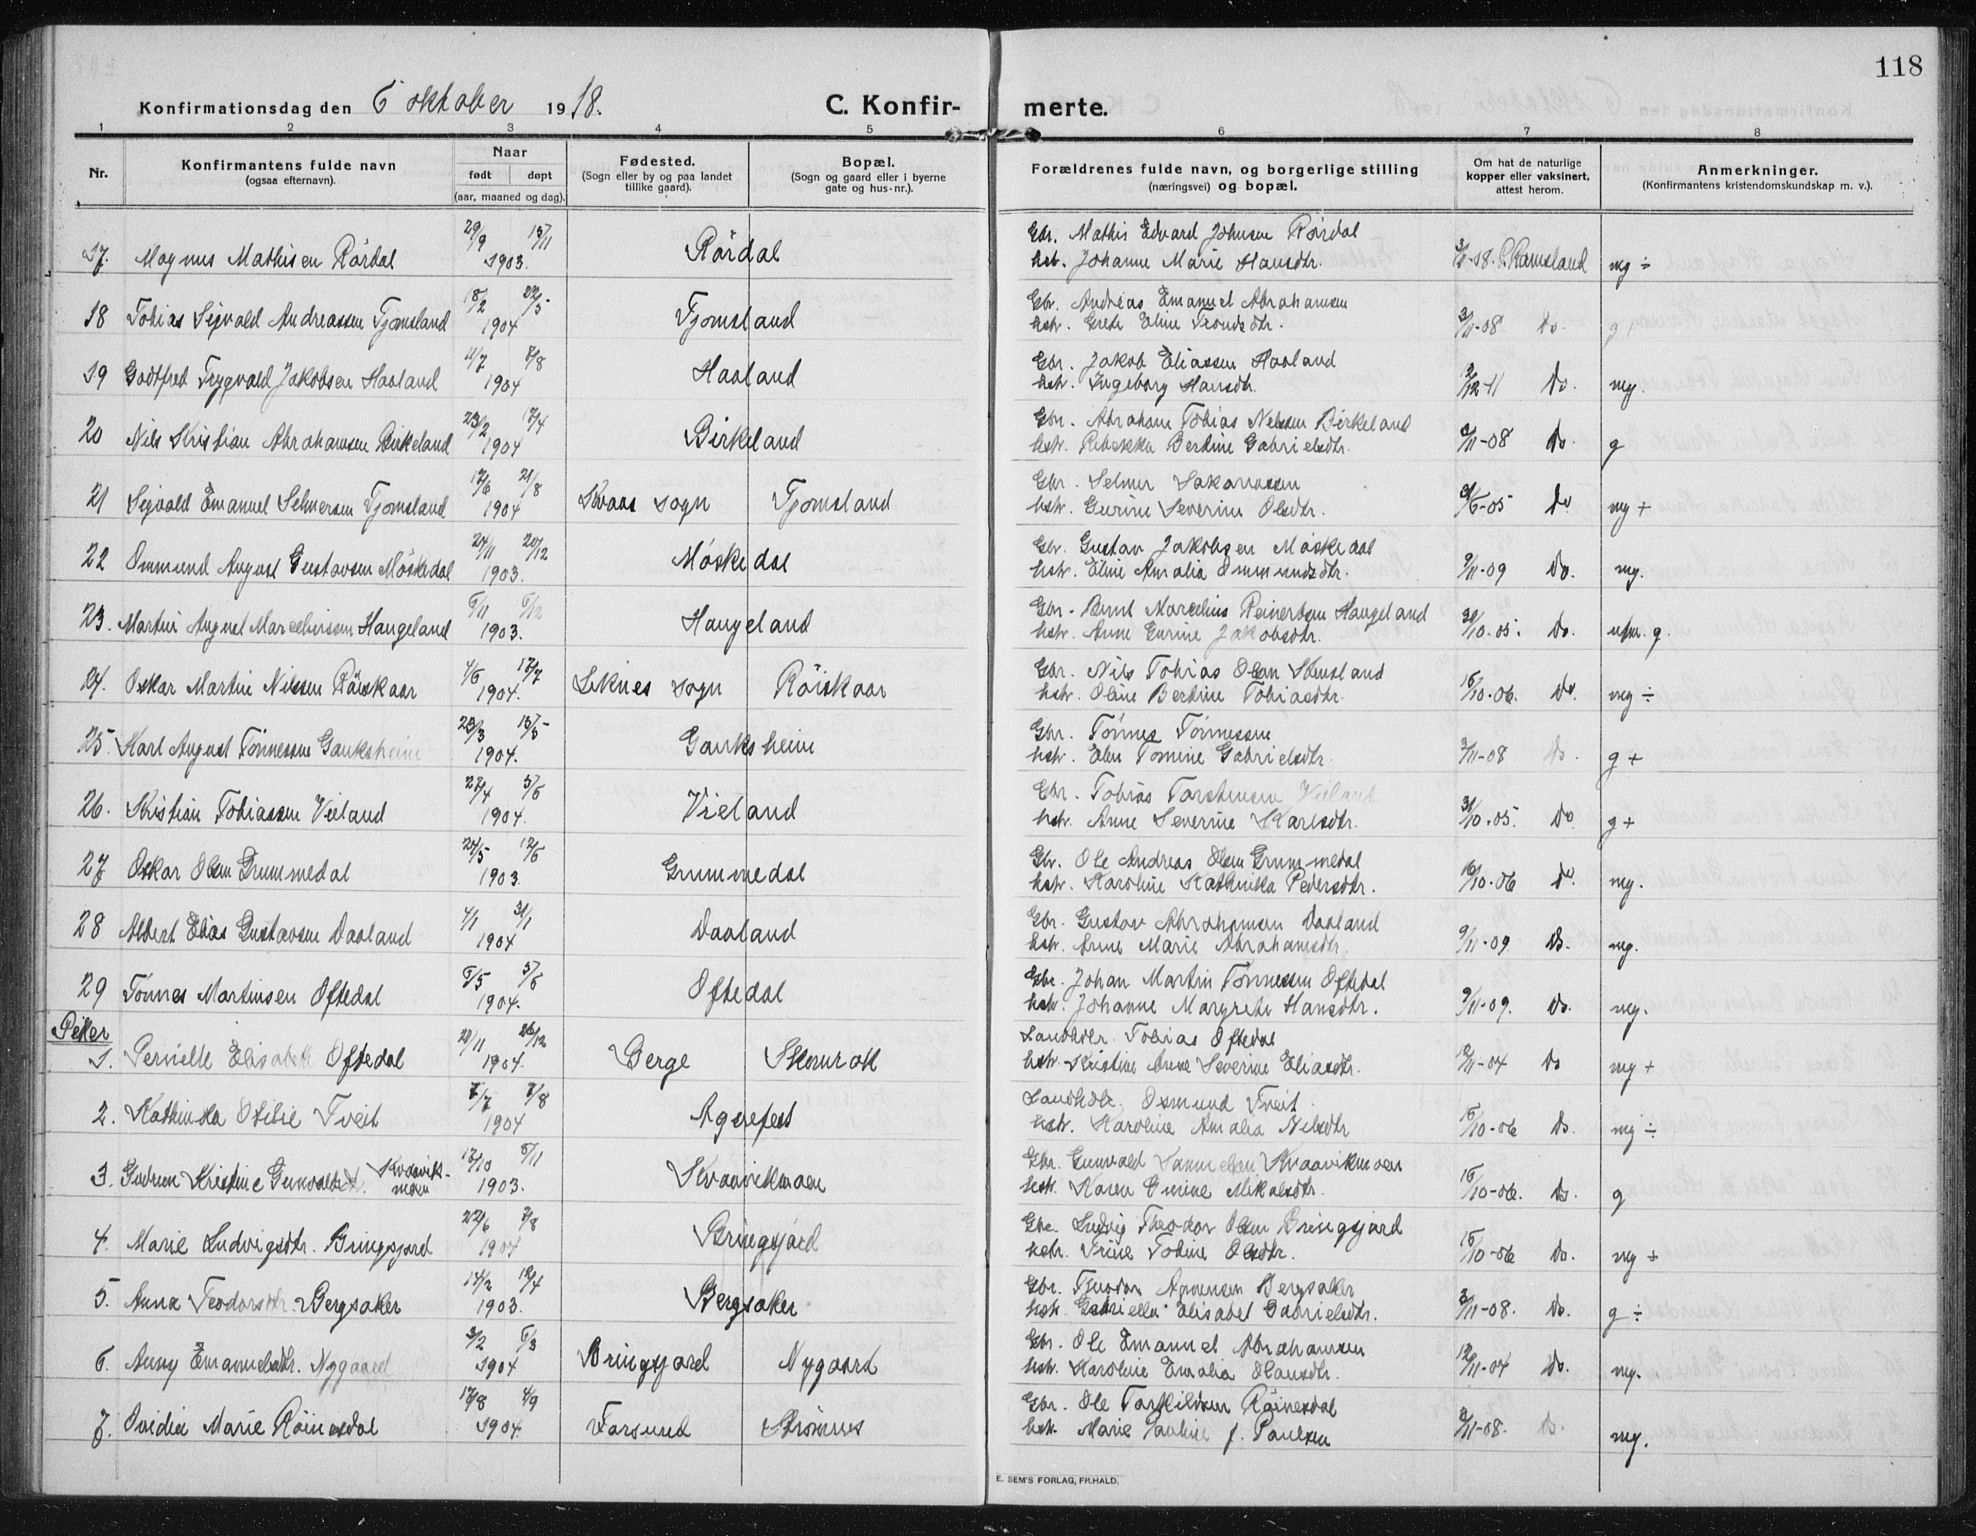 118
Konfirmationsdag den 6 oktober 1918.
C. Konfirmerte.
1 2 3 4 5 6 7 8
Nr.
Konfirmantens fulde navn
(ogsaa efternavn).
Naar
født døpt
(aar, maaned og dag).
Fødested.
(Sogn eller by og paa landet
tillike gaard).
Bopæl.
(Sogn og gaard eller i byerne
gate og hus-nr.).
Forældrenes fulde navn, og borgerlige stilling
(næringsvei) og bopæl.
Om hat de naturlige
kopper eller vaksinert,
attest herom.
Anmerkninger.
(Konfirmantens kristendomskundskap m. v.).
17. Magnus Mathisen Rørdal 29/9 15/11 1903. Rørdal
Gbr. Mathis Edvard Johnsen Rørdal
hstr. Johanne Marie Hansdtr. Ramsland mg ÷
18 Tobias Sigvald Andreassen Tjomsland 18/2 22/5 1904 Tjomsland
Gbr. Andreas Emanuel Abrahamsen
hstr. Grete Eline Trondsdtr. 3/11-08 Do. g
19 Godtfred Trygvald Jakobsen Haaland 11/7 8/8 1904 Haaland
Gbr. Jakob Eliassen Haaland
hstr. Ingeborg Hansdtr. 2/12-11 Do. mg.
20 Nils Kristian Abrahamsen Birkeland 23/2 17/4 1904 Birkeland
Gbr. Abraham Tobias Nelssen Birkeland
hstr. Rebekka Bertine Gabrielsdtr. 3/11-08 Do. g
21 Sigvald Emanuel Selmersen Tjomsland 17/6 21/8 1904 Kvaas sogn Tjomsland
Gbr. Selmer Sakariassen
hstr. Gurine Severine Olsdtr. -05 Do mg +
22 Ommund August Gustavsen Møskedal 24/11 20/12 1903. Møskedal
Gbr. Gustav Jakobsen Møskedal
hstr. Eline Amalia Ommundsdtr. 9/11-09 Do. mg.
23. Martin August Marceliussen Haugeland 5/11 6/12 1903. Haugeland
Gbr. Bernt Marcelius Reinertsen Haugeland
hstr. Anne Gurine Jakobsdtr. 31/10-05. Do. g.
24. Oskar Martin Nilssen Røiskaar 4/6 17/7 1904. Liknes sogn Røiskaar
Gbr. Nils Tobias Olsen
hstr. Oline Bertine Tobiasdtr. 15/10-06. Do. mg ÷
25. Karl August Tønnessen Gauksheim 23/3 15/5 1904. Gauksheim
Gbr. Tønnes Tønnessen
hstr. Elen Tomine Gabrielsdtr. 3/11-08 Do. g +
26. Kristian Tobiassen Vieland 22/4 5/6 1904. Vieland
Gbr. Tobias Torstensen Vieland
hstr. Anne Severine Karlsdtr. 31/10-05. Do g +
27 Oskar Olsen Grummedal 24/5 12/6 1903. Grummedal
Gbr. Ole Andreas Olsen Grummedal
hstr. Karoline Kathinka Pedersdtr. 16/10-06 Do. mg.
28 Albert Elias Gustavsen Daaland 4/1 31/1 1904 Daaland
Gbr. Gustav Abrahamsen Daaland
hstr. Anne Marie Abrahamsdtr. 9/11-09 Do. mg.
29 Tønnes Martinsen Oftedal 5/5 5/6 1904. Oftedal
Gbr. Johan Martin Tønnessen Oftedal
hstr. Johanne Margrete Hansdtr. 9/11-09. Do. mg.
Piker
1. Pernille Elisabeth Oftedal 26/12 1904. Berge
Landhdlr. Tobias Oftedal
hstr. Kristine Anne Severine Eliasdtr. 12/11-04 Do mg +
2. Kathinka Otilie Tveit 7/7 7/8 1904 Agerefest
Landhdlr. Osmund Tveit
hstr. Karoline Amalia Nilsdtr 15/10-06 Do. mg ÷
3. Gudrun Kristine Gunvaldsdtr. Kvaaviksmoen 13/10 8/11 1903. Kvaavikmoen
Gbr. Gunvald Samuelsen Kvaavikmoen
hstr. Karen Gurine Mikalsdtr. 15/10-06. Do. g
4. Marie Ludvigsdtr. Bringsjord 22/6 7/8 1904 Bringsjord
Gbr. Ludvig Theodor Olsen Bringsjord
hstr. Trine Tobine Olsdtr. 15/10-06 Do. mg ÷
5. Anna Teodorsdtr. Bergsaker 14/2 12/4 1903. Bergsaker
Gbr. Theodor Bergsaker
hstr. Gabriella Elisabet Gabrielsdtr. 3/11-08. Do. g ÷
6. Anny Emanuelsdtr. Nygaard 3/2 6/3 1904 Bringsjord Nygaard
Gbr. Ole Emanuel Abrahamsen
hstr. Karoline Emalia Olausdtr. 12/11-04 Do. mg.
7. Ovidia Marie Røinesdal 17/8 4/9 1904. Farsund Strømnes
Gbr. Ole Torkildsen Røinesdal
hstr. Marie Pauline f. Paulsen 3/11-08. Do. mg.
E. SEM'S FORLAG, FR.HALD.